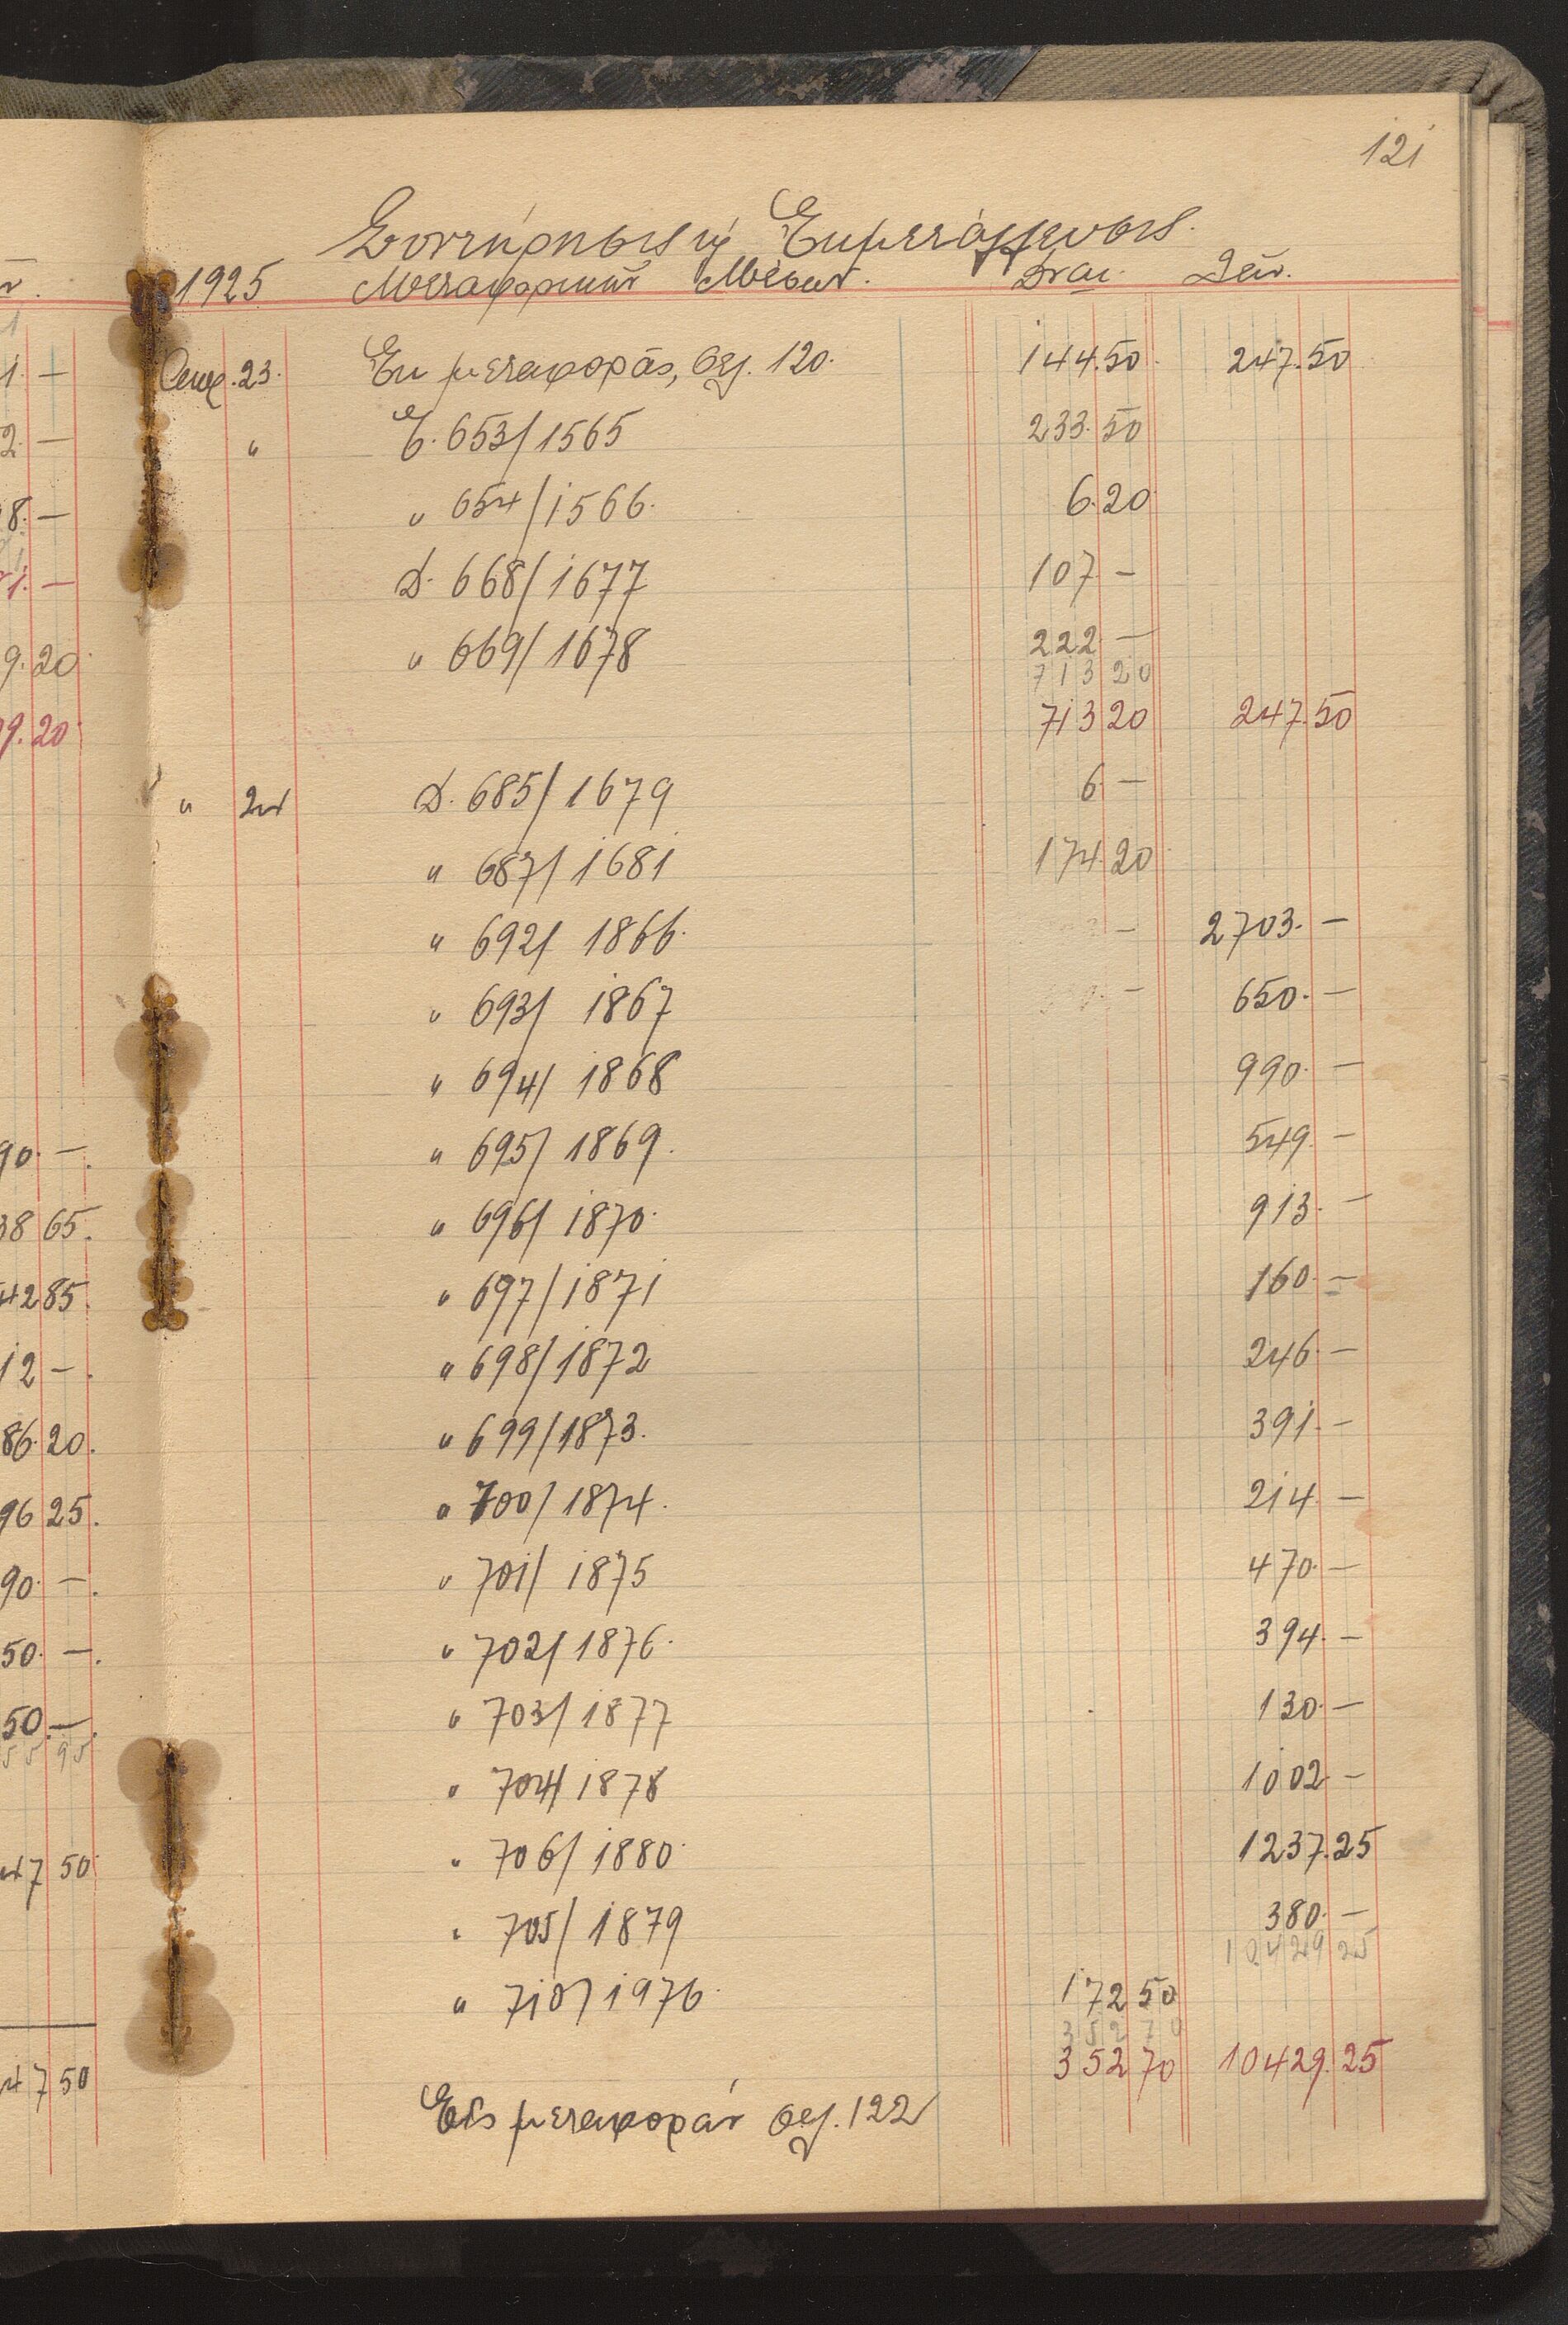 121
Συντήρησις ή Εκμετάλλευσις.
1925 Μεταφορικών Μέσων. Δναι. Λειν.
Σεπτ. 23. Εκ μεταφοράς, σελ. 120. 144.50 247.50
" Ε. 653/1565 233.50
" 654/1566. 6.20
Δ. 668/1677 107 —
" 669/1678 222 —
713 20
713 20 247.50
" 24 Δ. 685/1679 6 —
" 687/1681 174.20
" 692/1866. — 2703. —
" 693/1867 — 650. —
" 694/1868 990. —
" 695/1869. 549. —
" 696/1870. 913. —
" 697/1871 160. —
" 698/1872 246. —
" 699/1873. 391. —
" 700/1874. 214 —
" 701/1875 470. —
" 702/1876. 394. —
" 703/1877 130. —
" 704/1878 1002 —
" 706/1880. 1237.25
" 705/1879 380. —
10429 25
" 710/1976. 172 50
352 70
352 70 10429.25
Εις μεταφοράν σελ. 122
1. —
2. —
8. —
1. —
9.20
9.20
90. —.
38 65.
4285.
12 —.
86.20.
96 25.
90. —.
50. —.
50. —.
55 95
47 50
47 50